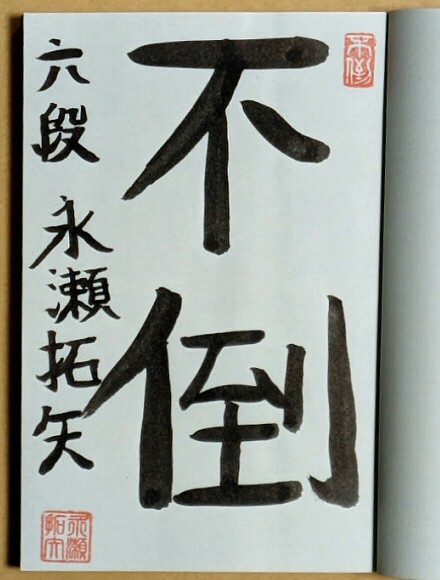 不倒
六段 永瀬拓矢
不倒
永瀬拓矢